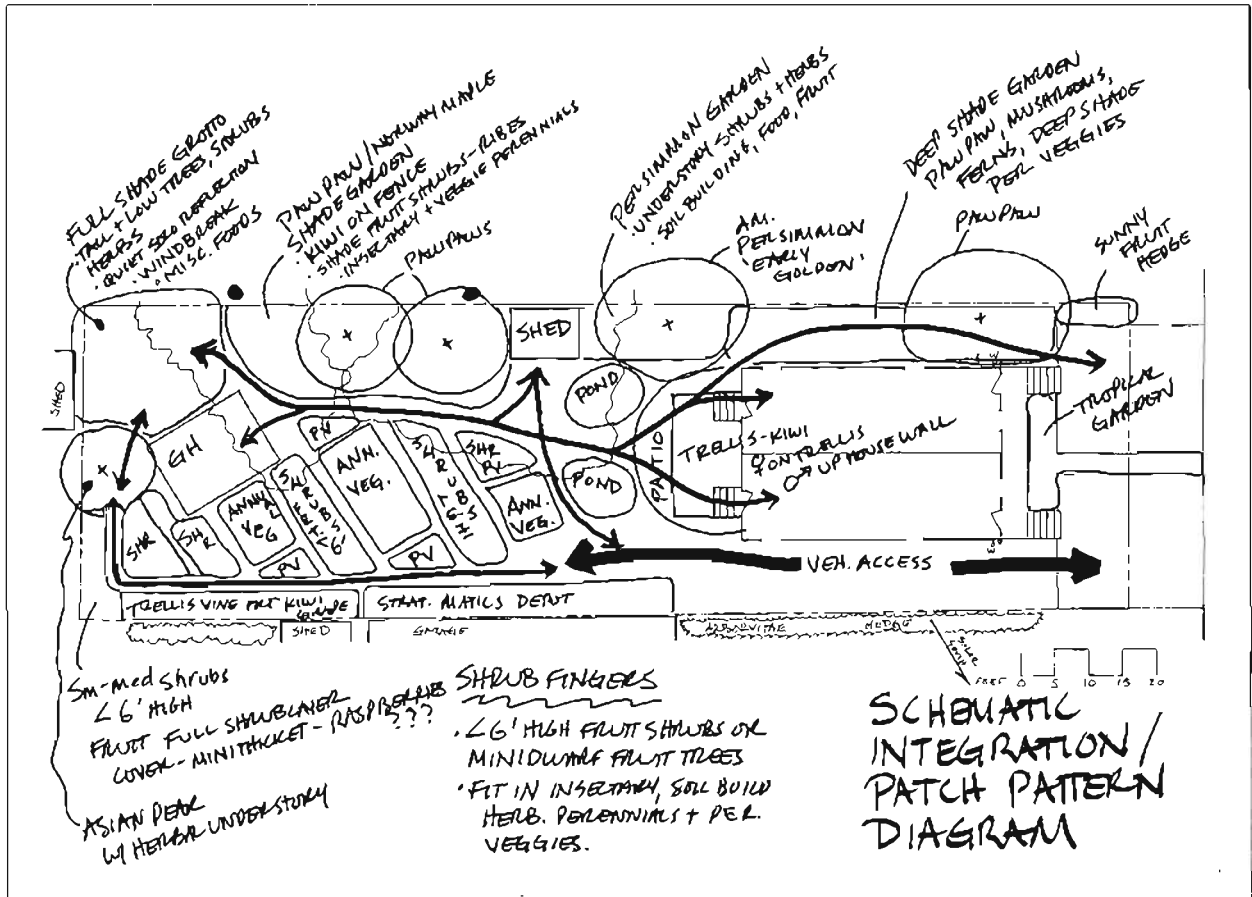 FULL SHADE GROTTO
· TALL + LOW TREES, SHRUBS
HERBS
· QUIET SOLO REFLECTION
· WINDBREAK
· MISC. FOODS
PAW PAW / NORWAY MAPLE
SHADE GARDEN
· KIWI ON FENCE
· SHADE FRUIT SHRUBS - RIBES
· INSECTARY + VEGGIE PERENNIALS
PAWPAWS
PERSIMMON GARDEN
· UNDERSTORY SHRUBS + HERBS
· SOIL BUILDING, FOOD, FRUIT
AM.
PERSIMMON
'EARLY
GOLDEN'
DEEP SHADE GARDEN
PAW PAW, MUSHROOMS,
FERNS, DEEP SHADE
PER. VEGGIES
PAWPAW
SUNNY
FRUIT
HEDGE
SHED
SHED
POND
POND
PATIO
TRELLIS-KIWI
ON TRELLIS
UP HOUSE WALL
TROPICAL
GARDEN
GH
PV
ANN.
VEG.
SHRUBS
<6'
SHR
PV
ANN.
VEG.
SHRUBS
<6'
ANNUAL
VEG
SHR
SHR
PV
PV
VEH. ACCESS
TRELLIS VINE
KIWI
STRAT. MATLS DEPOT
SHED
GARAGE
ARBORVITAE HEDGE
SOLAR
SOUTH
FEET 0 5 10 15 20
Sm-med shrubs
<6' HIGH
FRUIT FULL SHRUBLAYER
COVER - MINITHICKET - RASPBERRIES
???
ASIAN PEAR
W/ HERB UNDERSTORY
SHRUB FINGERS
· <6' HIGH FRUIT SHRUBS OR
MINIDWARF FRUIT TREES
· FIT IN INSECTARY, SOIL BUILD
HERB. PERENNIALS + PER.
VEGGIES.
SCHEMATIC
INTEGRATION/
PATCH PATTERN
DIAGRAM